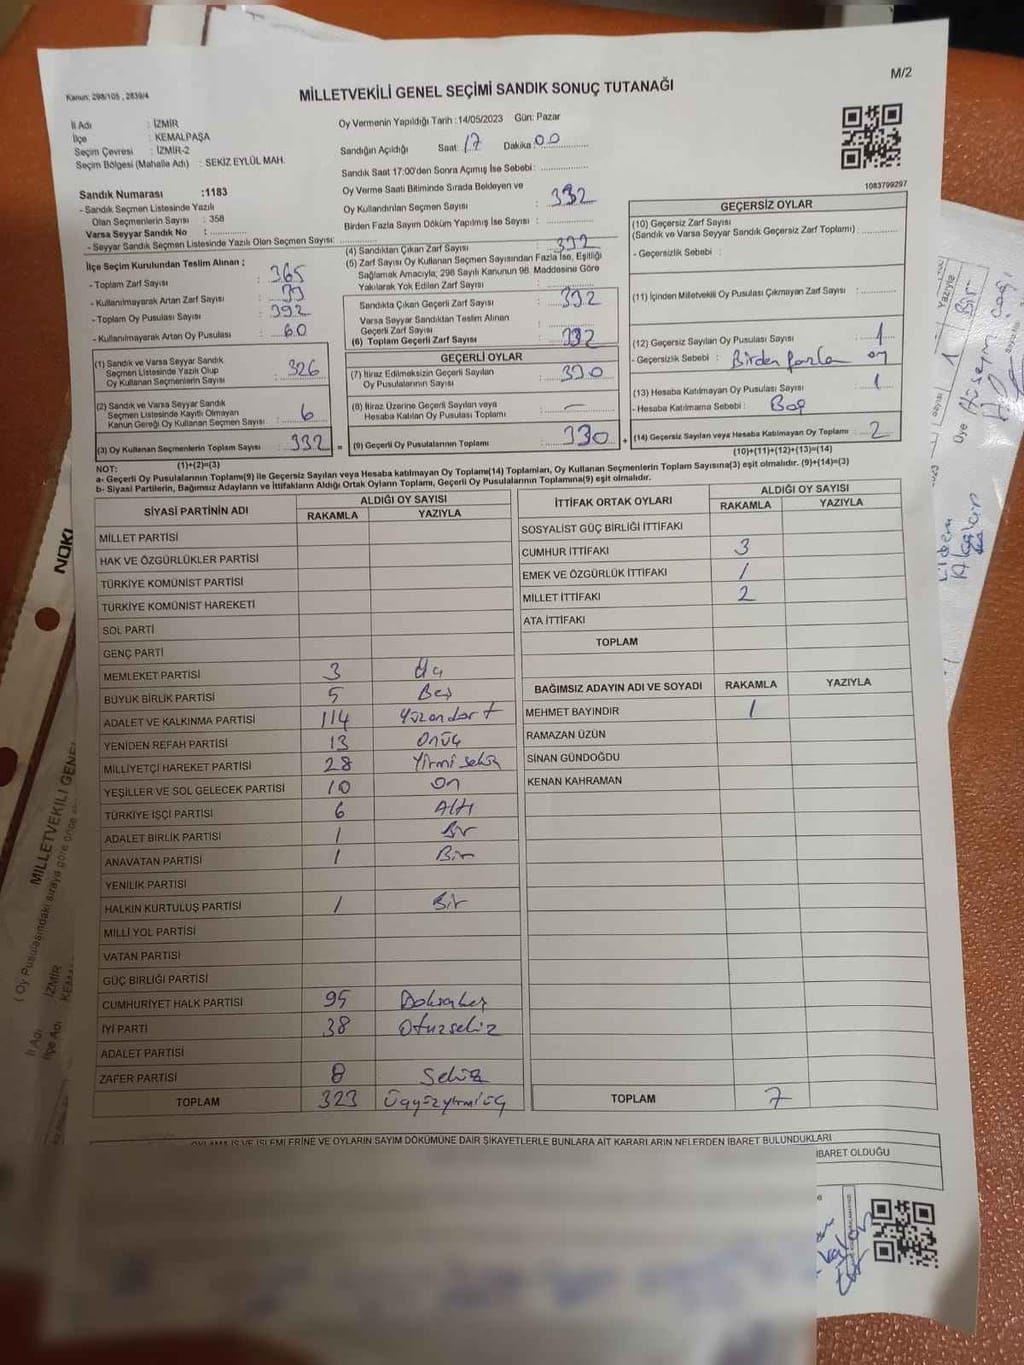 M/2
Kanun: 298/105 , 2839/4
MİLLETVEKİLİ GENEL SEÇİMİ SANDIK SONUÇ TUTANAĞI
İl Adı : İZMİR
İlçe : KEMALPAŞA
Seçim Çevresi : İZMİR-2
Seçim Bölgesi (Mahalle Adı) : SEKİZ EYLÜL MAH.
Oy Vermenin Yapıldığı Tarih :14/05/2023 Gün: Pazar
Sandığın Açıldığı Saat: 17 Dakika: 00
Sandık Saat 17:00'den Sonra Açımış İse Sebebi:
1083799297
Sandık Numarası :1183
- Sandık Seçmen Listesinde Yazılı
Olan Seçmenlerin Sayısı : 358
Varsa Seyyar Sandık No :
- Seyyar Sandık Seçmen Listesinde Yazılı Olan Seçmen Sayısı:
Oy Verme Saati Bitiminde Sırada Bekleyen ve
Oy Kullandırılan Seçmen Sayısı : 332
Birden Fazla Sayım Döküm Yapılmış İse Sayısı :
İlçe Seçim Kurulundan Teslim Alınan ;
- Toplam Zarf Sayısı : 365
- Kullanılmayarak Artan Zarf Sayısı : 33
- Toplam Oy Pusulası Sayısı : 392
- Kullanılmayarak Artan Oy Pusulası : 60
(1) Sandık ve Varsa Seyyar Sandık
Seçmen Listesinde Yazılı Olup
Oy Kullanan Seçmenlerin Sayısı : 326
(2) Sandık ve Varsa Seyyar Sandık
Seçmen Listesinde Kayıtlı Olmayan
Kanun Gereği Oy Kullanan Seçmen Sayısı : 6
(3) Oy Kullanan Seçmenlerin Toplam Sayısı : 332
(1)+(2)=(3)
(4) Sandıktan Çıkan Zarf Sayısı : 332
(5) Zarf Sayısı Oy Kullanan Seçmen Sayısından Fazla İse, Eşitliği
Sağlamak Amacıyla; 298 Sayılı Kanunun 98. Maddesine Göre
Yakılarak Yok Edilen Zarf Sayısı :
Sandıkta Çıkan Geçerli Zarf Sayısı : 332
Varsa Seyyar Sandıktan Teslim Alınan
Geçerli Zarf Sayısı :
(6) Toplam Geçerli Zarf Sayısı : 332
GEÇERLİ OYLAR
(7) İtiraz Edilmeksizin Geçerli Sayılan
Oy Pusulalarının Sayısı : 330
(8) İtiraz Üzerine Geçerli Sayılan veya
Hesaba Katılan Oy Pusulası Toplamı : —
= (9) Geçerli Oy Pusulalarının Toplamı : 330 +
GEÇERSİZ OYLAR
(10) Geçersiz Zarf Sayısı
(Sandık ve Varsa Seyyar Sandık Geçersiz Zarf Toplamı) :
- Geçersizlik Sebebi :
(11) İçinden Milletvekili Oy Pusulası Çıkmayan Zarf Sayısı :
(12) Geçersiz Sayılan Oy Pusulası Sayısı : 1
- Geçersizlik Sebebi : Birden fazla oy
(13) Hesaba Katılmayan Oy Pusulası Sayısı : 1
- Hesaba Katılmama Sebebi : Boş
(14) Geçersiz Sayılan veya Hesaba Katılmayan Oy Toplamı : 2
(10)+(11)+(12)+(13)=(14)
NOT:
a- Geçerli Oy Pusulalarının Toplamı(9) ile Geçersiz Sayılan veya Hesaba katılmayan Oy Toplamı(14) Toplamları, Oy Kullanan Seçmenlerin Toplam Sayısına(3) eşit olmalıdır. (9)+(14)=(3)
b- Siyasi Partilerin, Bağımsız Adayların ve İttifakların Aldığı Ortak Oyların Toplamı, Geçerli Oy Pusulalarının Toplamına(9) eşit olmalıdır.
SİYASİ PARTİNİN ADI ALDIĞI OY SAYISI
RAKAMLA YAZIYLA
MİLLET PARTİSİ
HAK VE ÖZGÜRLÜKLER PARTİSİ
TÜRKİYE KOMÜNİST PARTİSİ
TÜRKİYE KOMÜNİST HAREKETİ
SOL PARTİ
GENÇ PARTİ
MEMLEKET PARTİSİ 3 Üç
BÜYÜK BİRLİK PARTİSİ 5 Beş
ADALET VE KALKINMA PARTİSİ 114 Yüzondört
YENİDEN REFAH PARTİSİ 13 Onüç
MİLLİYETÇİ HAREKET PARTİSİ 28 Yirmisekiz
YEŞİLLER VE SOL GELECEK PARTİSİ 10 On
TÜRKİYE İŞÇİ PARTİSİ 6 Altı
ADALET BİRLİK PARTİSİ 1 Bir
ANAVATAN PARTİSİ 1 Bir
YENİLİK PARTİSİ
HALKIN KURTULUŞ PARTİSİ 1 Bir
MİLLİ YOL PARTİSİ
VATAN PARTİSİ
GÜÇ BİRLİĞİ PARTİSİ
CUMHURİYET HALK PARTİSİ 95 Doksanbeş
İYİ PARTİ 38 Otuzsekiz
ADALET PARTİSİ
ZAFER PARTİSİ 8 Sekiz
TOPLAM 323 Üçyüzyirmiüç
İTTİFAK ORTAK OYLARI ALDIĞI OY SAYISI
RAKAMLA YAZIYLA
SOSYALİST GÜÇ BİRLİĞİ İTTİFAKI
CUMHUR İTTİFAKI 3
EMEK VE ÖZGÜRLÜK İTTİFAKI 1
MİLLET İTTİFAKI 2
ATA İTTİFAKI
TOPLAM
BAĞIMSIZ ADAYIN ADI VE SOYADI RAKAMLA YAZIYLA
MEHMET BAYINDIR 1
RAMAZAN ÜZÜN
SİNAN GÜNDOĞDU
KENAN KAHRAMAN
TOPLAM 7
OYLAMA İŞ VE İŞLEMLERİNE VE OYLARIN SAYIM DÖKÜMÜNE DAİR ŞİKAYETLERLE BUNLARA AİT KARARLARIN NELERDEN İBARET BULUNDUKLARI
İBARET OLDUĞU
NOKI
MİLLETVEKİLİ GENE
( Oy Pusulasındaki sıraya göre önce
İl Adı İZMİR
İlçe Adı KEM
Yazıyla
Bir
sayısı
1
Üye
Hüseyin